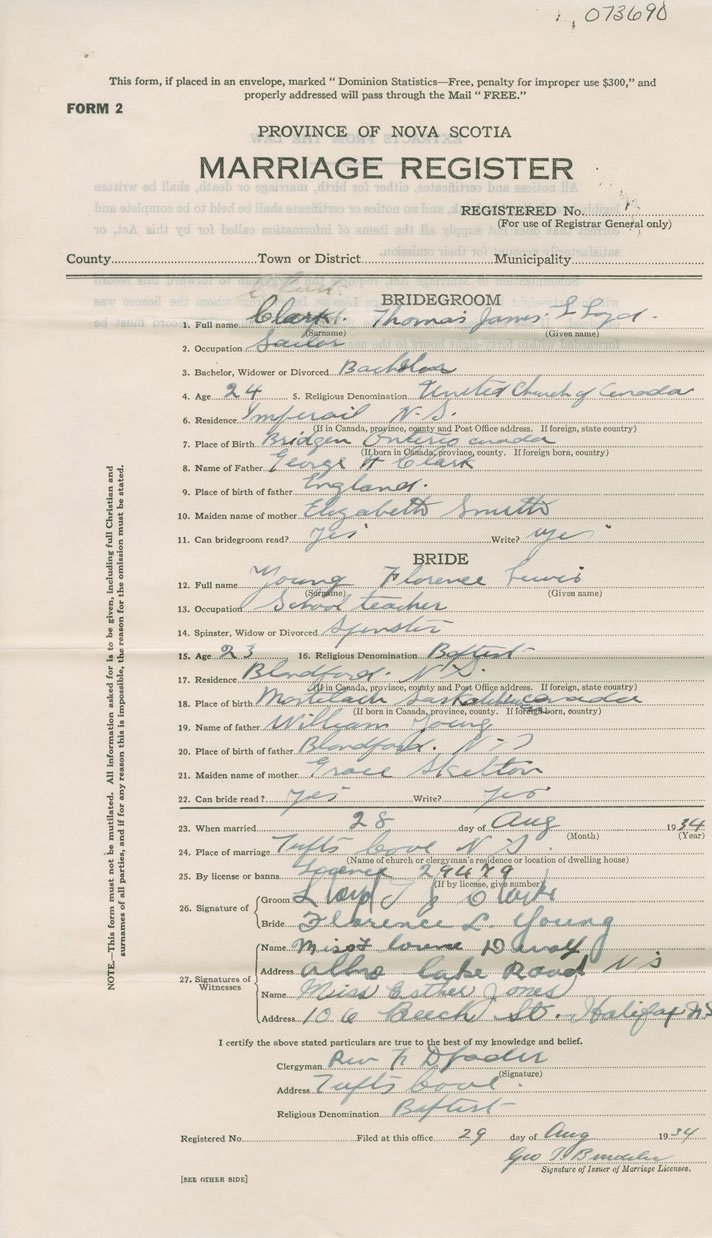 073690
This form, if placed in an envelope, marked " Dominion Statistics—Free, penalty for improper use $300," and
properly addressed will pass through the Mail " FREE."
FORM 2
PROVINCE OF NOVA SCOTIA
MARRIAGE REGISTER
REGISTERED No.
(For use of Registrar General only)
County Town or District Municipality
BRIDEGROOM
1. Full name Clark. Thomas James. L Loyd.
(Surname) (Given name)
2. Occupation Sailor
3. Bachelor, Widower or Divorced Bachelor
4. Age 24 5. Religious Denomination United Church of Canada
6. Residence Imperail N.S.
(If in Canada, province, county and Post Office address. If foreign, state country)
7. Place of Birth Bridgen Onterio canada
(If born in Canada, province, county. If foreign born, country)
8. Name of Father George H Clark
9. Place of birth of father England.
10. Maiden name of mother Elizabeth Smith
11. Can bridegroom read? yes Write? yes
BRIDE
12. Full name Young Florence Lewis
(Surname) (Given name)
13. Occupation School teacher
14. Spinster, Widow or Divorced Spinster
15. Age 23 16. Religious Denomination Baptist
17. Residence Blandford. N.S.
(If in Canada, province, county and Post Office address. If foreign, state country)
18. Place of birth Mortlach canada
(If born in Canada, province, county. If foreign born, country)
19. Name of father William Young
20. Place of birth of father Blandford. N.S
21. Maiden name of mother Grace Skelton
22. Can bride read? yes Write? yes
23. When married 28 day of Aug 1934
(Month) (Year)
24. Place of marriage Tufts Cove N.S.
(Name of church or clergyman's residence or location of dwelling house)
25. By license or banns License 29479
(If by license, give number)
26. Signature of
Groom Lloyd T J Clark
Bride Florence L. Young
27. Signatures of Witnesses
Name Miss
Address Albro Lake Road N S
Name Miss Esther Jones
Address 106 Beech St. Halifax N.S
I certify the above stated particulars are true to the best of my knowledge and belief.
Clergyman Rev
(Signature)
Address Tufts Cove.
Religious Denomination Baptist
Registered No. Filed at this office 29 day of Aug 1934
Geo
Signature of Issuer of Marriage Licenses.
[SEE OTHER SIDE]
NOTE.—This form must not be mutilated. All information asked for is to be given, including full Christian and
surnames of all parties, and if for any reason this is impossible, the reason for the omission must be stated.